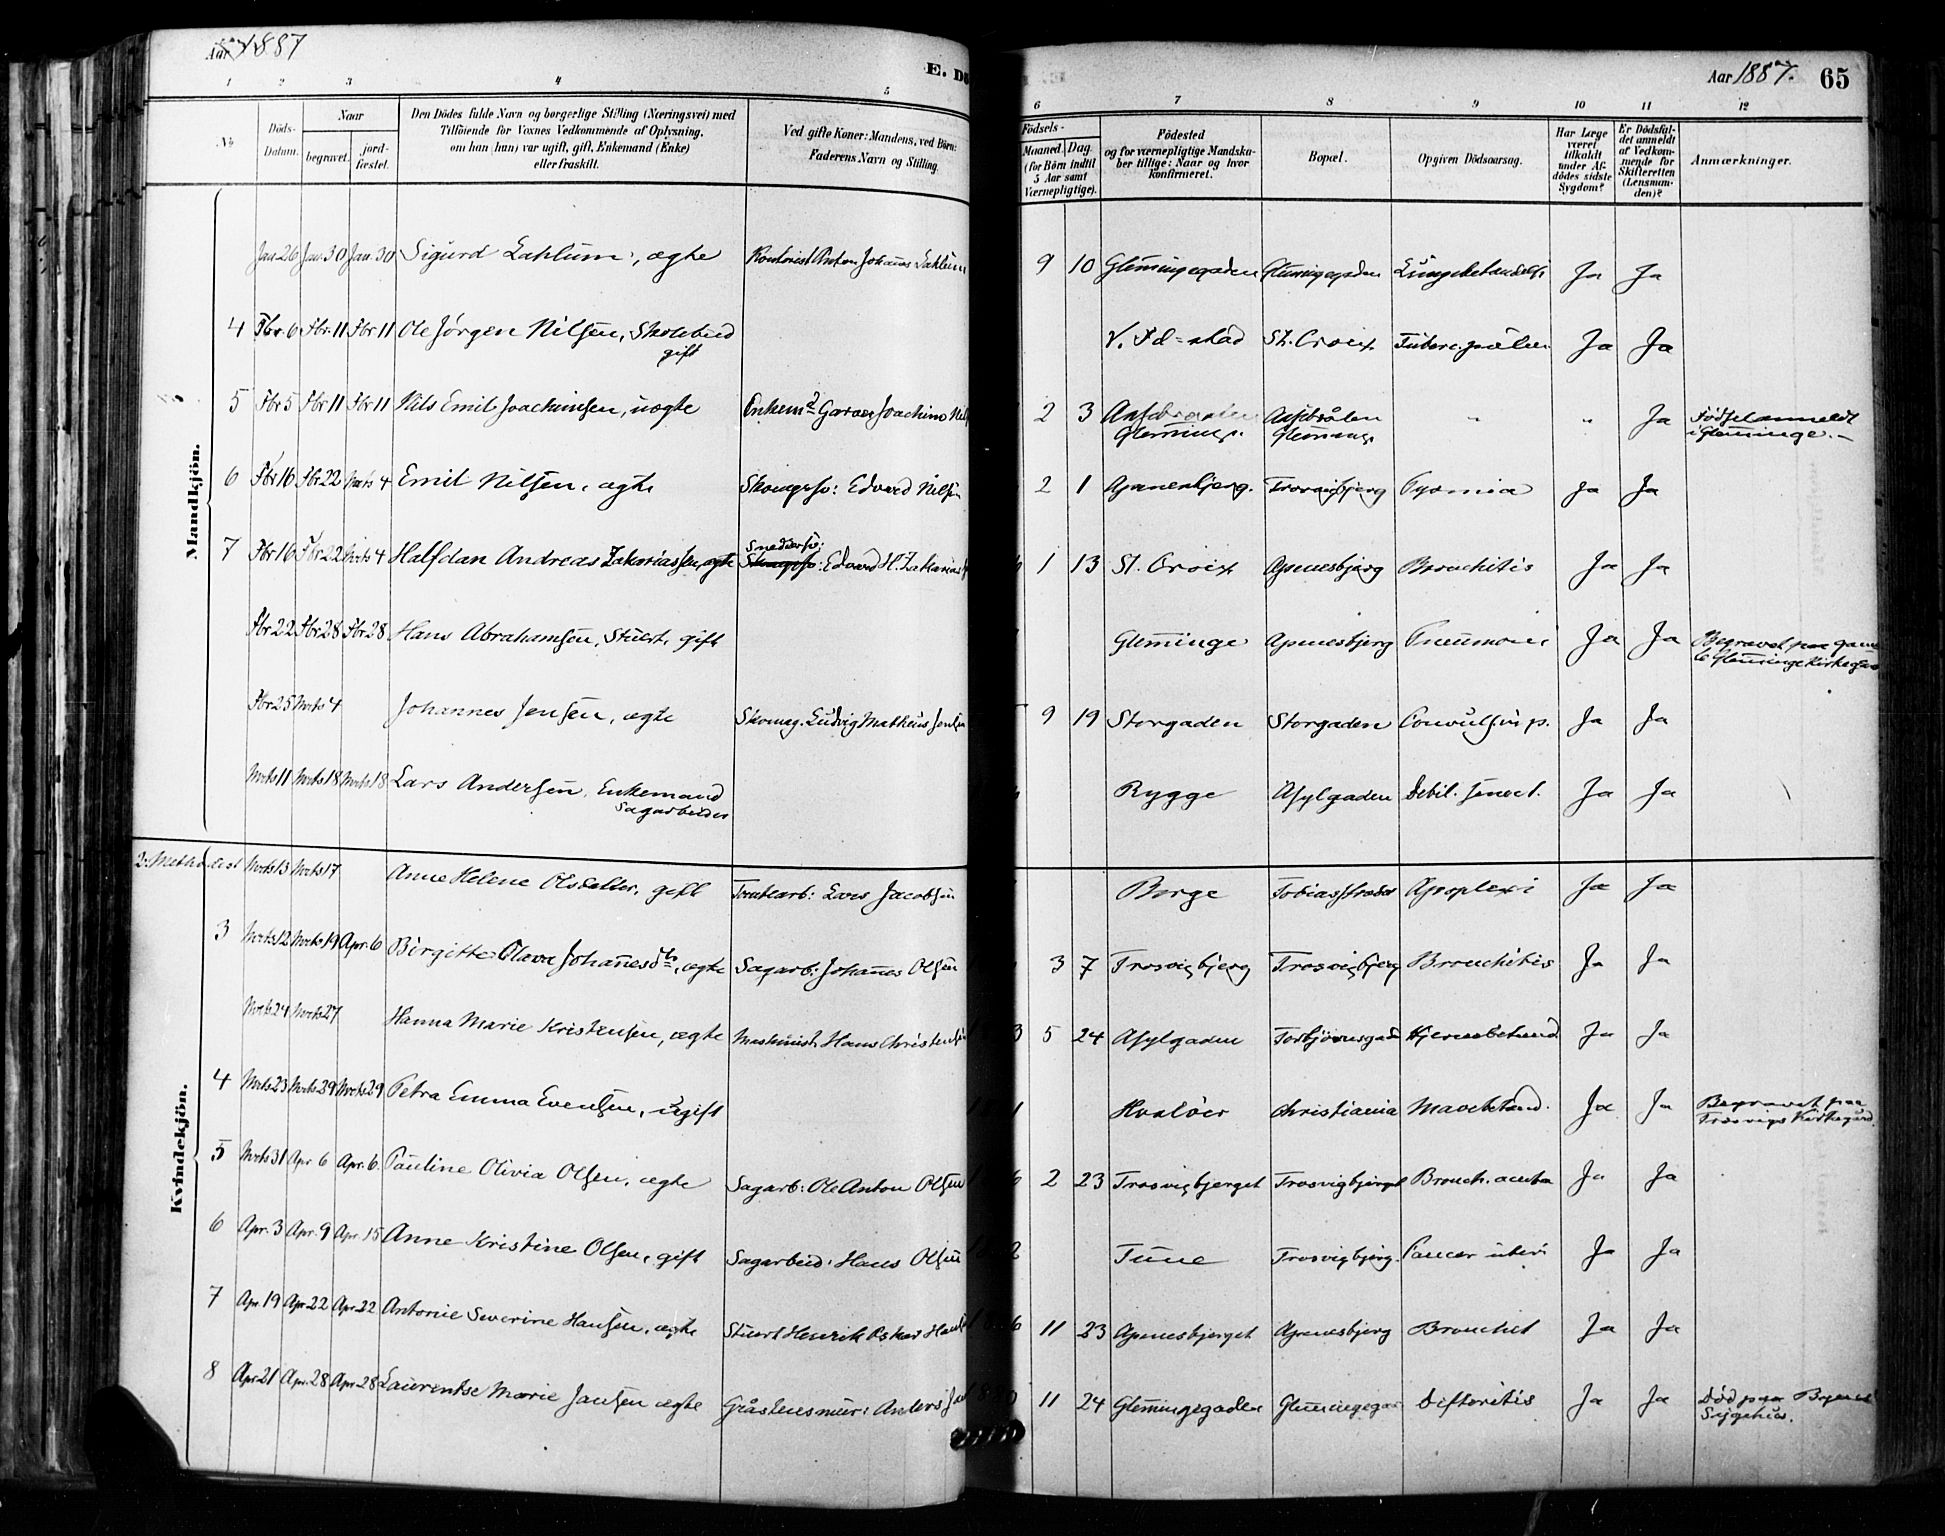 Aar 1887
E. D
Aar 1887. 65
1 2 3 4 5 6 7 8 9 10 11 12
No
Döds-Datum.
Naar
begravet.
jord-fæstet.
Den Dödes fulde Navn og borgerlige Stilling (Næringsvei) med
Tilföiende for Voxnes Vedkommende af Oplysning,
om han (hun) var ugift, gift, Enkemand (Enke)
eller fraskilt.
Ved gifte Koner: Mandens, ved Börn:
Faderens Navn og Stilling.
Födsels-
Maaned. Dag.
(for Börn indtil
5 Aar samt
Værnepligtige).
Födested
og for værnepligtige Mandska-
ber tillige: Naar og hvor
konfirmeret.
Bopæl.
Opgiven Dödsaarsag.
Har Læge
været
tilkaldt
under Af-
dödes sidste
Sygdom?
Er Dödsfal-
det anmeldt
af Vedkom-
mende for
Skifteretten
(Lensman-
den)?
Anmærkninger.
Mandkjön.
Jan 26 Jan. 30 Jan. 30 Sigurd Lahlum, ægte Kontorist Anton Johannes Lahlum 9 10 Glemmingegaden Glemmingegaden Lungebetændelse Ja Ja
4 Fbr. 6 Fbr. 11 Fbr 11 Ole Jörgen Nilsen, Skolebud
gift V. Fd=stad St. Croix Ja Ja
5 Fbr 5 Fbr 11 Fbr 11 Nils Emil Joachimsen, uægte Enkemd Garver Joachim Nils 2 3
Glemminge. Glemminge " " Ja Födsel anmeldt
i Glemminge.
6 Fbr 16 Fbr 22 Marts 4 Emil Nilsen, ægte Skomgrsv: Edvard Nilsen 2 1 Apenesbjerg. Trosvigbjerg Pyæmia Ja Ja
7 Fbr 16 Fbr 22 Marts 4 Halfdan Andreas Zakariassen, ægte Snedkersv: Edvard H. Zakarias 1 13 St. Croix Apenesbjerg Bronchitis Ja Ja
Fbr 22 Fbr 28 Fbr 28 Hans Abrahamsen, Stuert, gift Glemminge Apenesbjerg Pneumoni Ja Ja Begravet paa gam
le Glemminge Kirkegaard
Fbr 25 Marts 4 Johannes Jensen, ægte Skomag. Ludvig Matheus Jensen 9 19 Storgaden Storgaden Convulsin p. Ja Ja
Marts 11 Marts 18 Marts 18 Lars Andersen, Enkemand
Sagarbeider Rygge Asylgaden Debil. senect. Ja Ja
Kvindekjön.
2: Methodist Marts 13 Marts 17 Anne Helene Olsdatter, gift Tomtearb: Lars Jacobsen Borge Apoplexi Ja Ja
3 Marts 12 Marts 19 Apr. 6 Birgitte Olava Johannesdtr, ægte Sagarb: Johannes Olsen 3 7 Trosvigbjerg Trosvigbjerg Bronchitis Ja Ja
Marts 24 Marts 27 Hanna Marie Kristensen, ægte Maskinist Hans Christensen 3 5 24 Asylgaden Torbjörnsgad Hjernebetænd. Ja Ja
4 Marts 23 Marts 29 Marts 29 Petra Emma Evensen, ugift Hvalöer Christiania Mavebetænd. Ja Ja Begravet paa
Trosvigs Kirkegård
5 Marts 31 Apr 6 Apr. 6. Pauline Olivia Olsen, ægte Sagarb: Ole Anton Olsen 6 2 23 Trosvigbjerget Trosvigbjerget Bronch. acuta Ja Ja
6 Apr. 3 Apr. 9 Apr. 15 Anne Kristine Olsen, gift Sagarbeid: Hans Olsen 2 Tune Trosvigbjerg. Cancer uteri Ja Ja
7 Apr. 19 Apr. 22 Apr. 22 Antonie Severine Hansen, ægte Stuert Henrik Oskar Hans 6 11 23 Apenesbjerget Apenesbjerg Bronchit Ja Ja
8 Apr. 21 Apr. 28 Apr. 28 Laurentse Marie Jansen ægte Gråstensmur: Anders Jan 11 24 Glemmingegaden Glemmingegad Difteritis Ja Ja Död paa Byens
Sygehus.